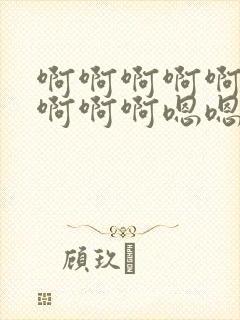 啊啊啊啊啊
啊啊啊嗯嗯
顾玖